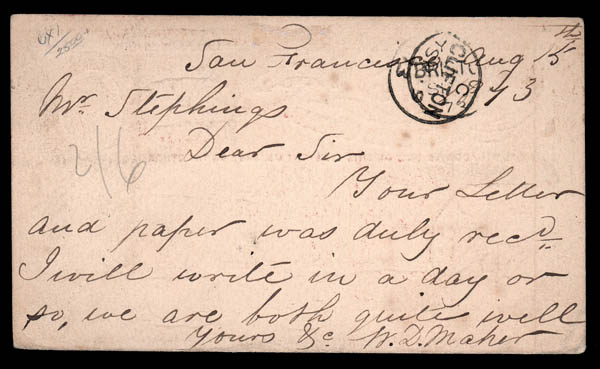 San Francisco Aug 15th
73
Mr. Stephings
Dear Sir
Your Letter
and paper was duly recd.
I will write in a day or
so, we are both quite well
Yours &c. W. D. Maher
CLIFTON
2/6